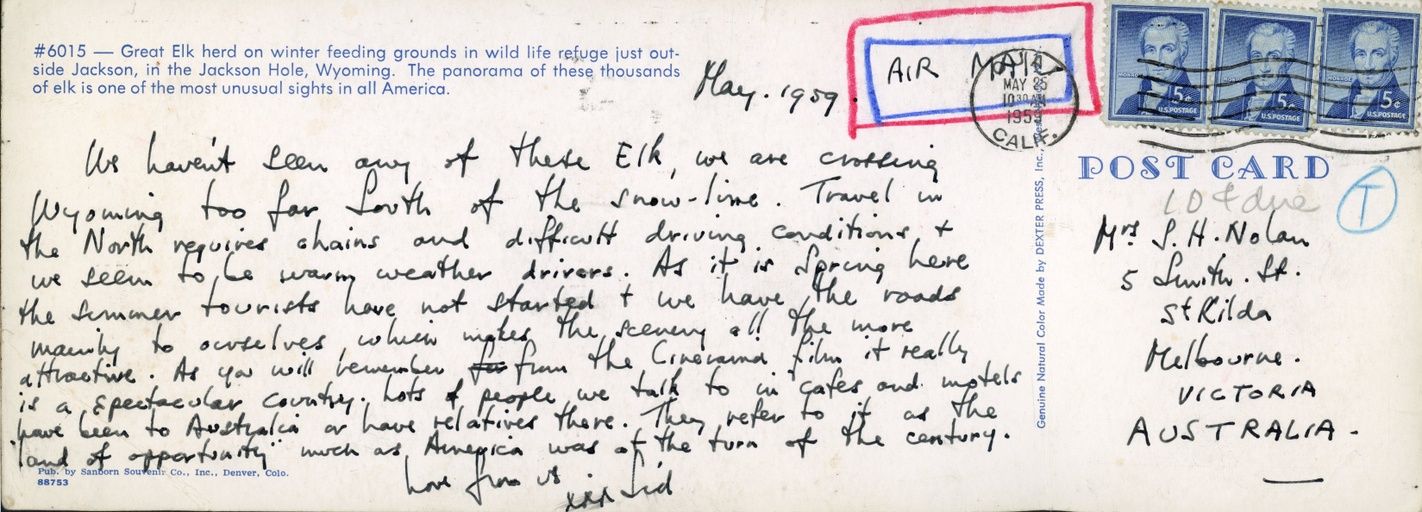 #6015 — Great Elk herd on winter feeding grounds in wild life refuge just out-
side Jackson, in the Jackson Hole, Wyoming. The panorama of these thousands
of elk is one of the most unusual sights in all America.
May. 1959.
AIR MAIL
MAY 25
10 30 AM
1959
CALIF.
MONROE
5¢
U.S. POSTAGE
MONROE
5¢
U.S. POSTAGE
MONROE
5¢
U.S. POSTAGE
We haven't seen any of these Elk, we are crossing
Wyoming too far South of the snow-line. Travel in
the North requires chains and difficult driving conditions +
we seem to be warm weather drivers. As it is Spring here
the summer tourists have not started + we have the roads
mainly to ourselves which makes the scenery all the more
attractive. As you will remember from the Cinerama film it really
is a spectacular country. Lots of people we talk to in cafes and motels
have been to Australia or have relatives there. They refer to it as the
"land of opportunity" much as America was at the turn of the century.
Love from us
xxx Sid
Pub. by Sanborn Souvenir Co., Inc., Denver, Colo.
88753
Genuine Natural Color Made by DEXTER PRESS, Inc.,
POST CARD
10¢ due
T
Mrs S. H. Nolan
5 Smith. St.
St Kilda
Melbourne.
VICTORIA
AUSTRALIA.